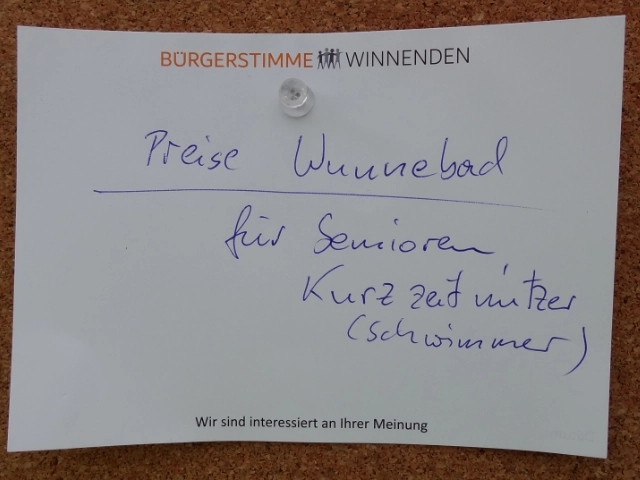 BÜRGERSTIMME WINNENDEN
Preise Wunnebad
für Senioren,
Kurzzeitnützer
(Schwimmer)
Wir sind interessiert an Ihrer Meinung